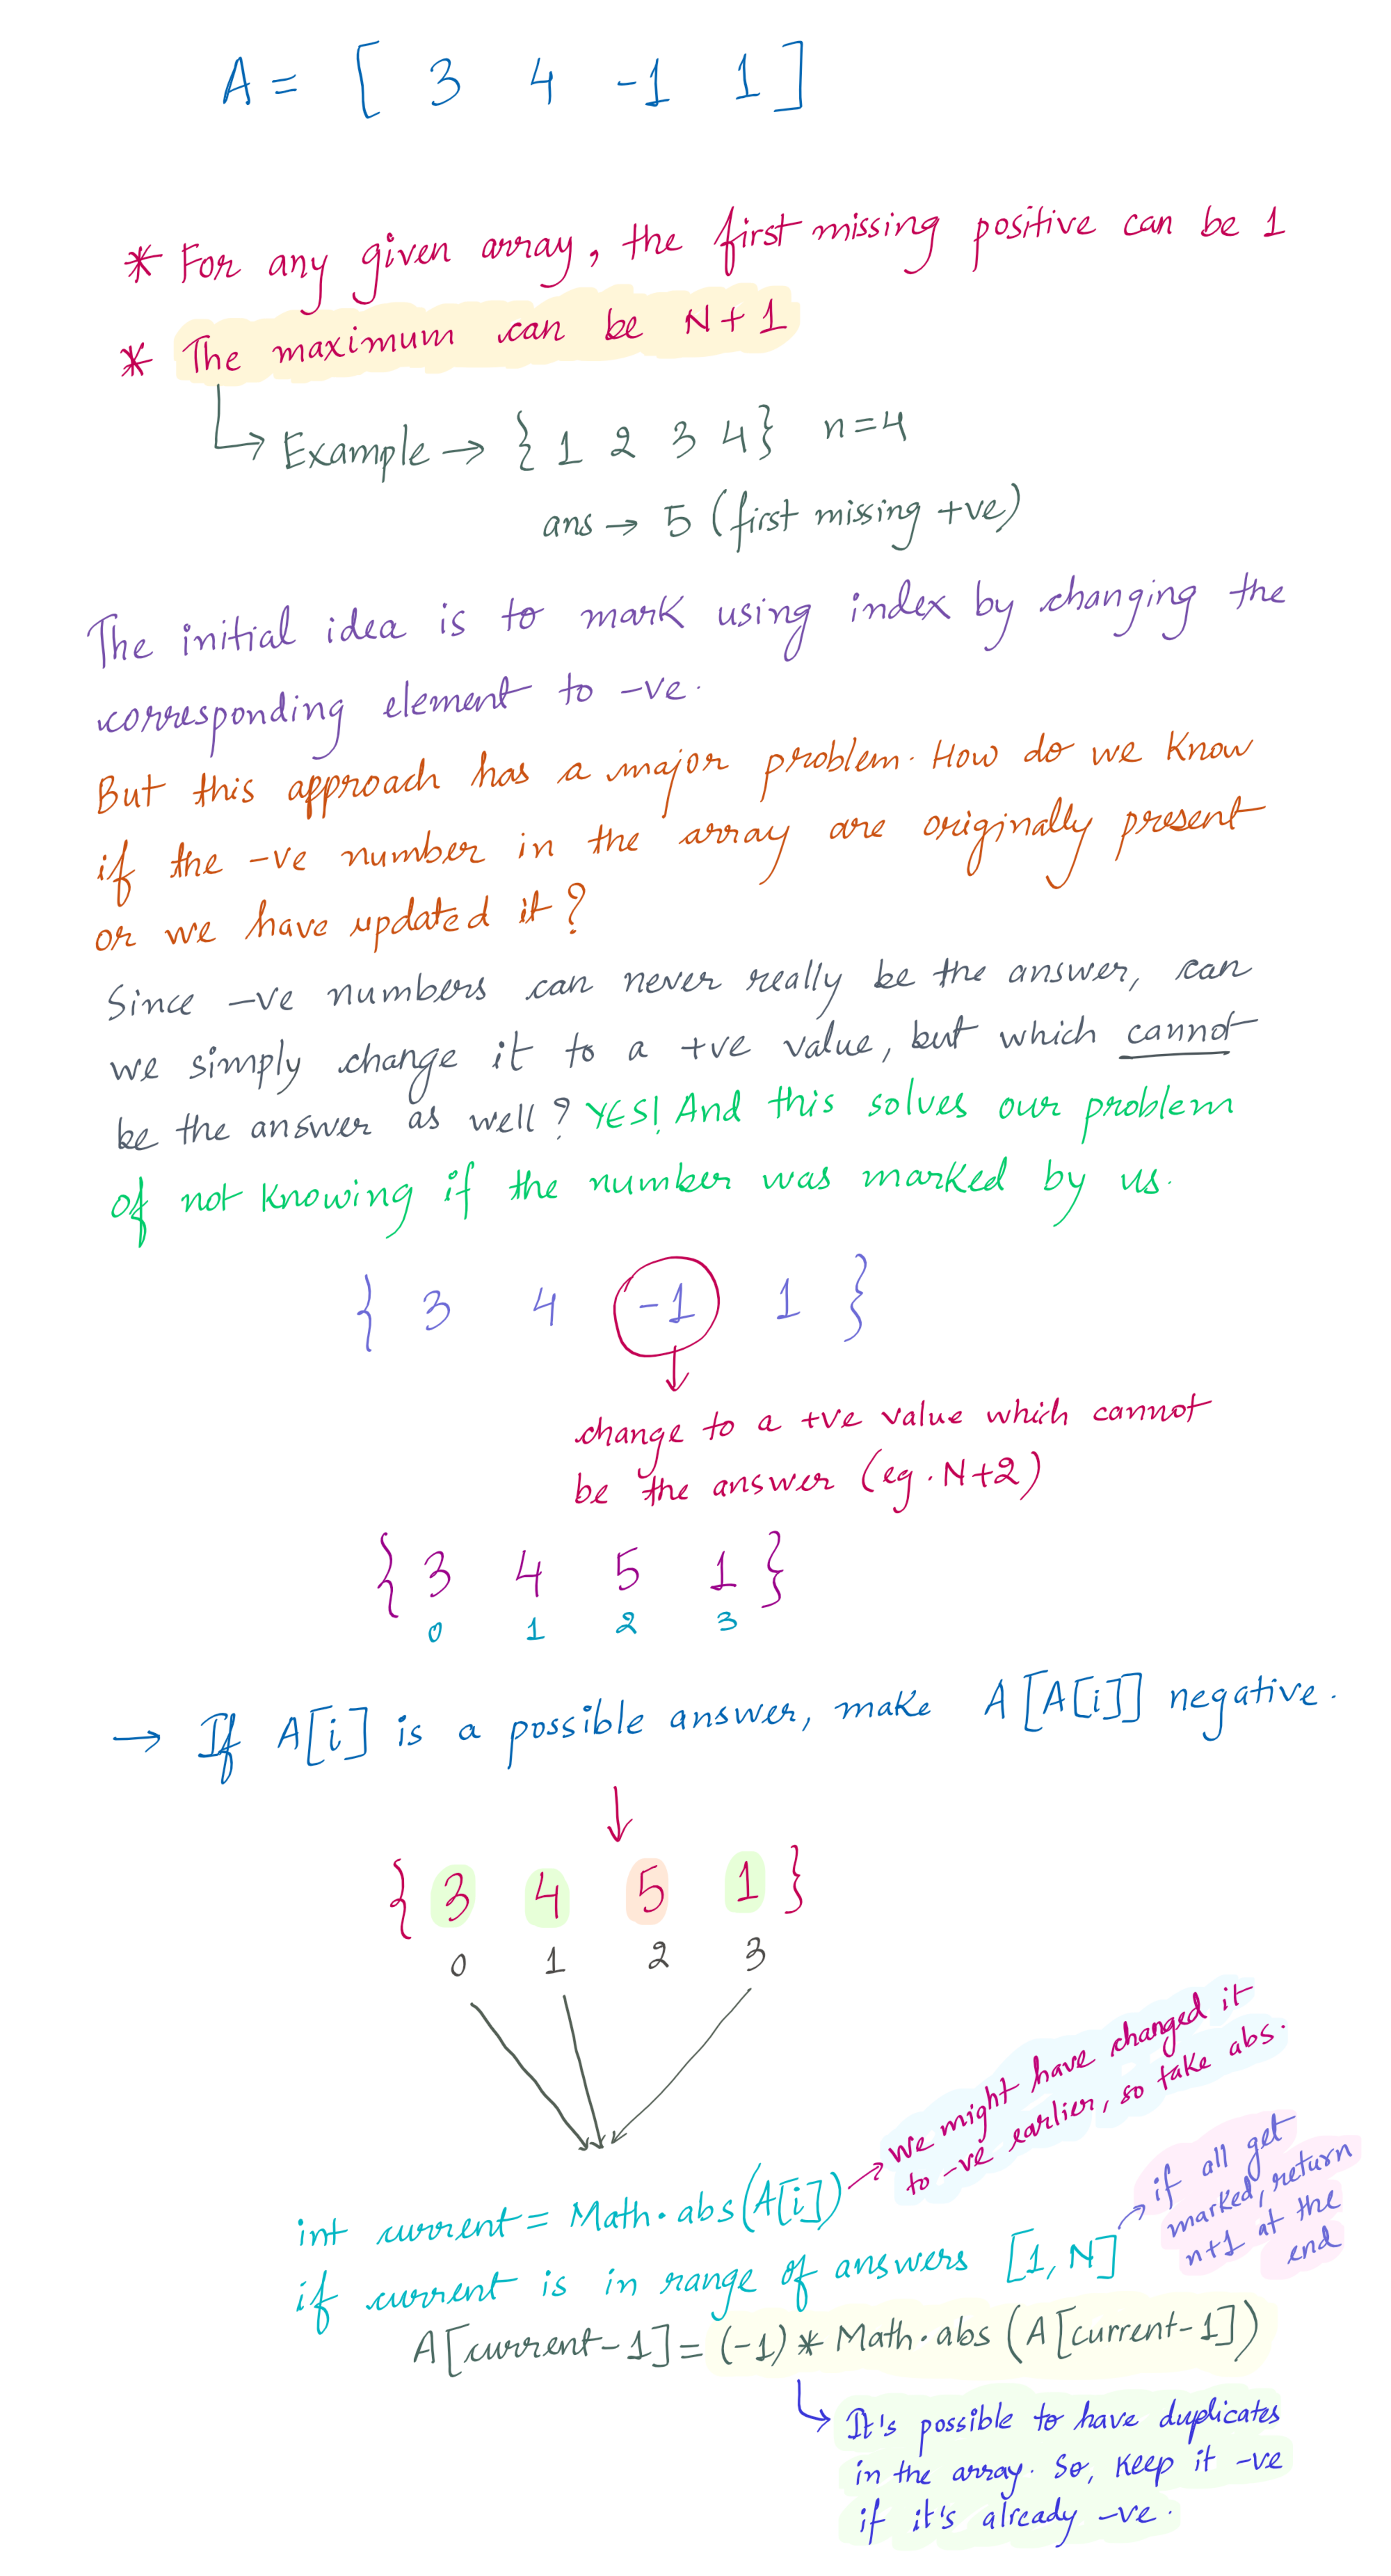 A = [ 3 4 -1 1 ]
* For any given array, the first missing positive can be 1
* The maximum can be N+1
↳ Example → { 1 2 3 4 } n=4
ans → 5 (first missing +ve)
The initial idea is to mark using index by changing the
corresponding element to -ve.
But this approach has a major problem. How do we know
if the -ve number in the array are originally present
or we have updated it?
Since -ve numbers can never really be the answer, can
we simply change it to a +ve value, but which cannot
be the answer as well? YES! And this solves our problem
of not knowing if the number was marked by us.
{ 3 4 -1 1 }
change to a +ve value which cannot
be the answer (eg. N+2)
{ 3 4 5 1 }
0 1 2 3
→ If A[i] is a possible answer, make A[A[i]] negative.
{ 3 4 5 1 }
0 1 2 3
we might have changed it
to -ve earlier, so take abs.
int current = Math.abs(A[i])
if all get
marked, return
n+1 at the
end
if current is in range of answers [1, N]
A[current-1] = (-1) * Math.abs (A[current-1])
It's possible to have duplicates
in the array. So, keep it -ve
if it's already -ve.